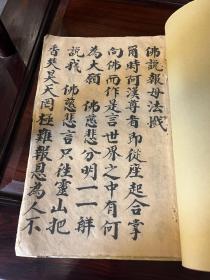 佛說報母法懺
爾時阿漢尊者即從座起合掌
向佛而作是言世界之中有何
為大願　佛慈悲分明一一解
說我　佛慈悲言只往靈山把
香焚昊天罔極難報恩為人不